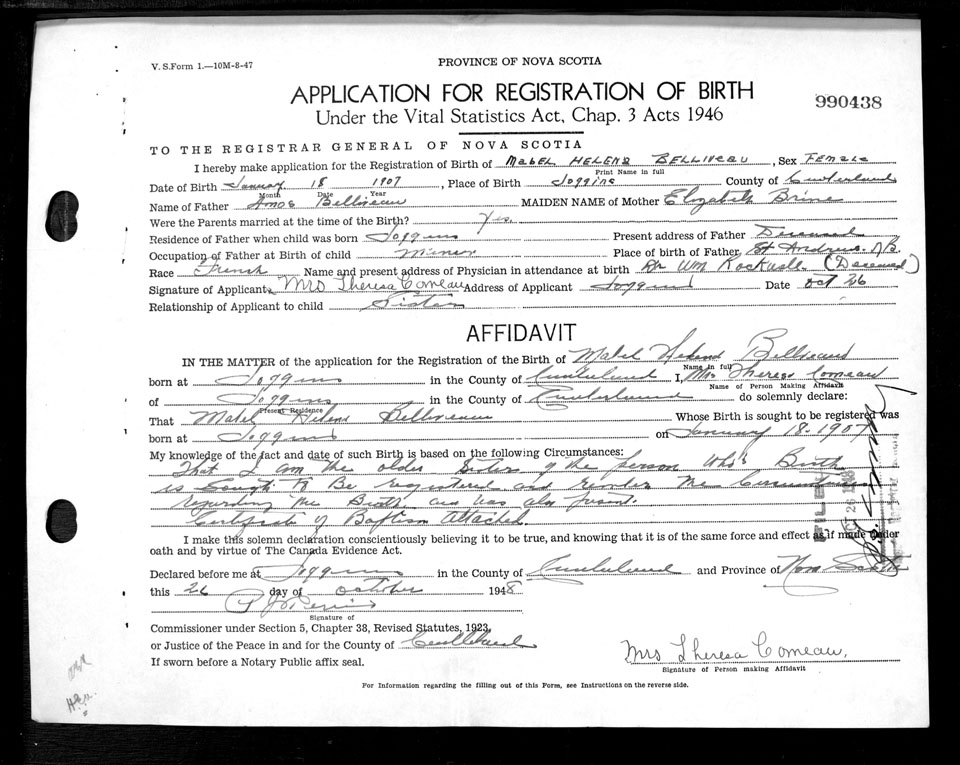 V. S. Form 1.—10M-8-47
PROVINCE OF NOVA SCOTIA
APPLICATION FOR REGISTRATION OF BIRTH
990438
Under the Vital Statistics Act, Chap. 3 Acts 1946
TO THE REGISTRAR GENERAL OF NOVA SCOTIA
I hereby make application for the Registration of Birth of MABEL HELENA BELLIVEAU, Sex FEMALE
Print Name in full
Date of Birth January 18 1907, Place of Birth Joggins County of Cumberland
Month Date Year
Name of Father Amos Belliveau MAIDEN NAME of Mother Elizabeth Brine
Were the Parents married at the time of the Birth? Yes.
Residence of Father when child was born Joggins Present address of Father Deceased
Occupation of Father at Birth of child Miner Place of birth of Father St. Andrews. N.B.
Race French Name and present address of Physician in attendance at birth Dr Wm Rockwell. (Deceased)
Signature of Applicant Mrs Theresa Comeau Address of Applicant Joggins Date Oct 26
Relationship of Applicant to child Sister
AFFIDAVIT
IN THE MATTER of the application for the Registration of the Birth of Mabel Helena Belliveau
Name in full
born at Joggins in the County of Cumberland I, Mrs Theresa Comeau
Name of Person Making Affidavit
of Joggins in the County of Cumberland do solemnly declare:
Present Residence
That Mabel Helena Belliveau Whose Birth is sought to be registered was
born at Joggins on January 18. 1907
My knowledge of the fact and date of such Birth is based on the following Circumstances:
That I am the older Sister of the person Who's Birth
is Sought To Be registered and the Circumstances
regarding the Birth and was also present.
Certificate of Baptism Attached.
FILED
I make this solemn declaration conscientiously believing it to be true, and knowing that it is of the same force and effect as if made under
oath and by virtue of The Canada Evidence Act.
Declared before me at Joggins in the County of Cumberland and Province of Nova Scotia
this 26 day of October 1948
Signature of
Commissioner under Section 5, Chapter 38, Revised Statutes, 1923,
or Justice of the Peace in and for the County of Cumberland
If sworn before a Notary Public affix seal.
Mrs Theresa Comeau.
Signature of Person making Affidavit
For Information regarding the filling out of this Form, see Instructions on the reverse side.